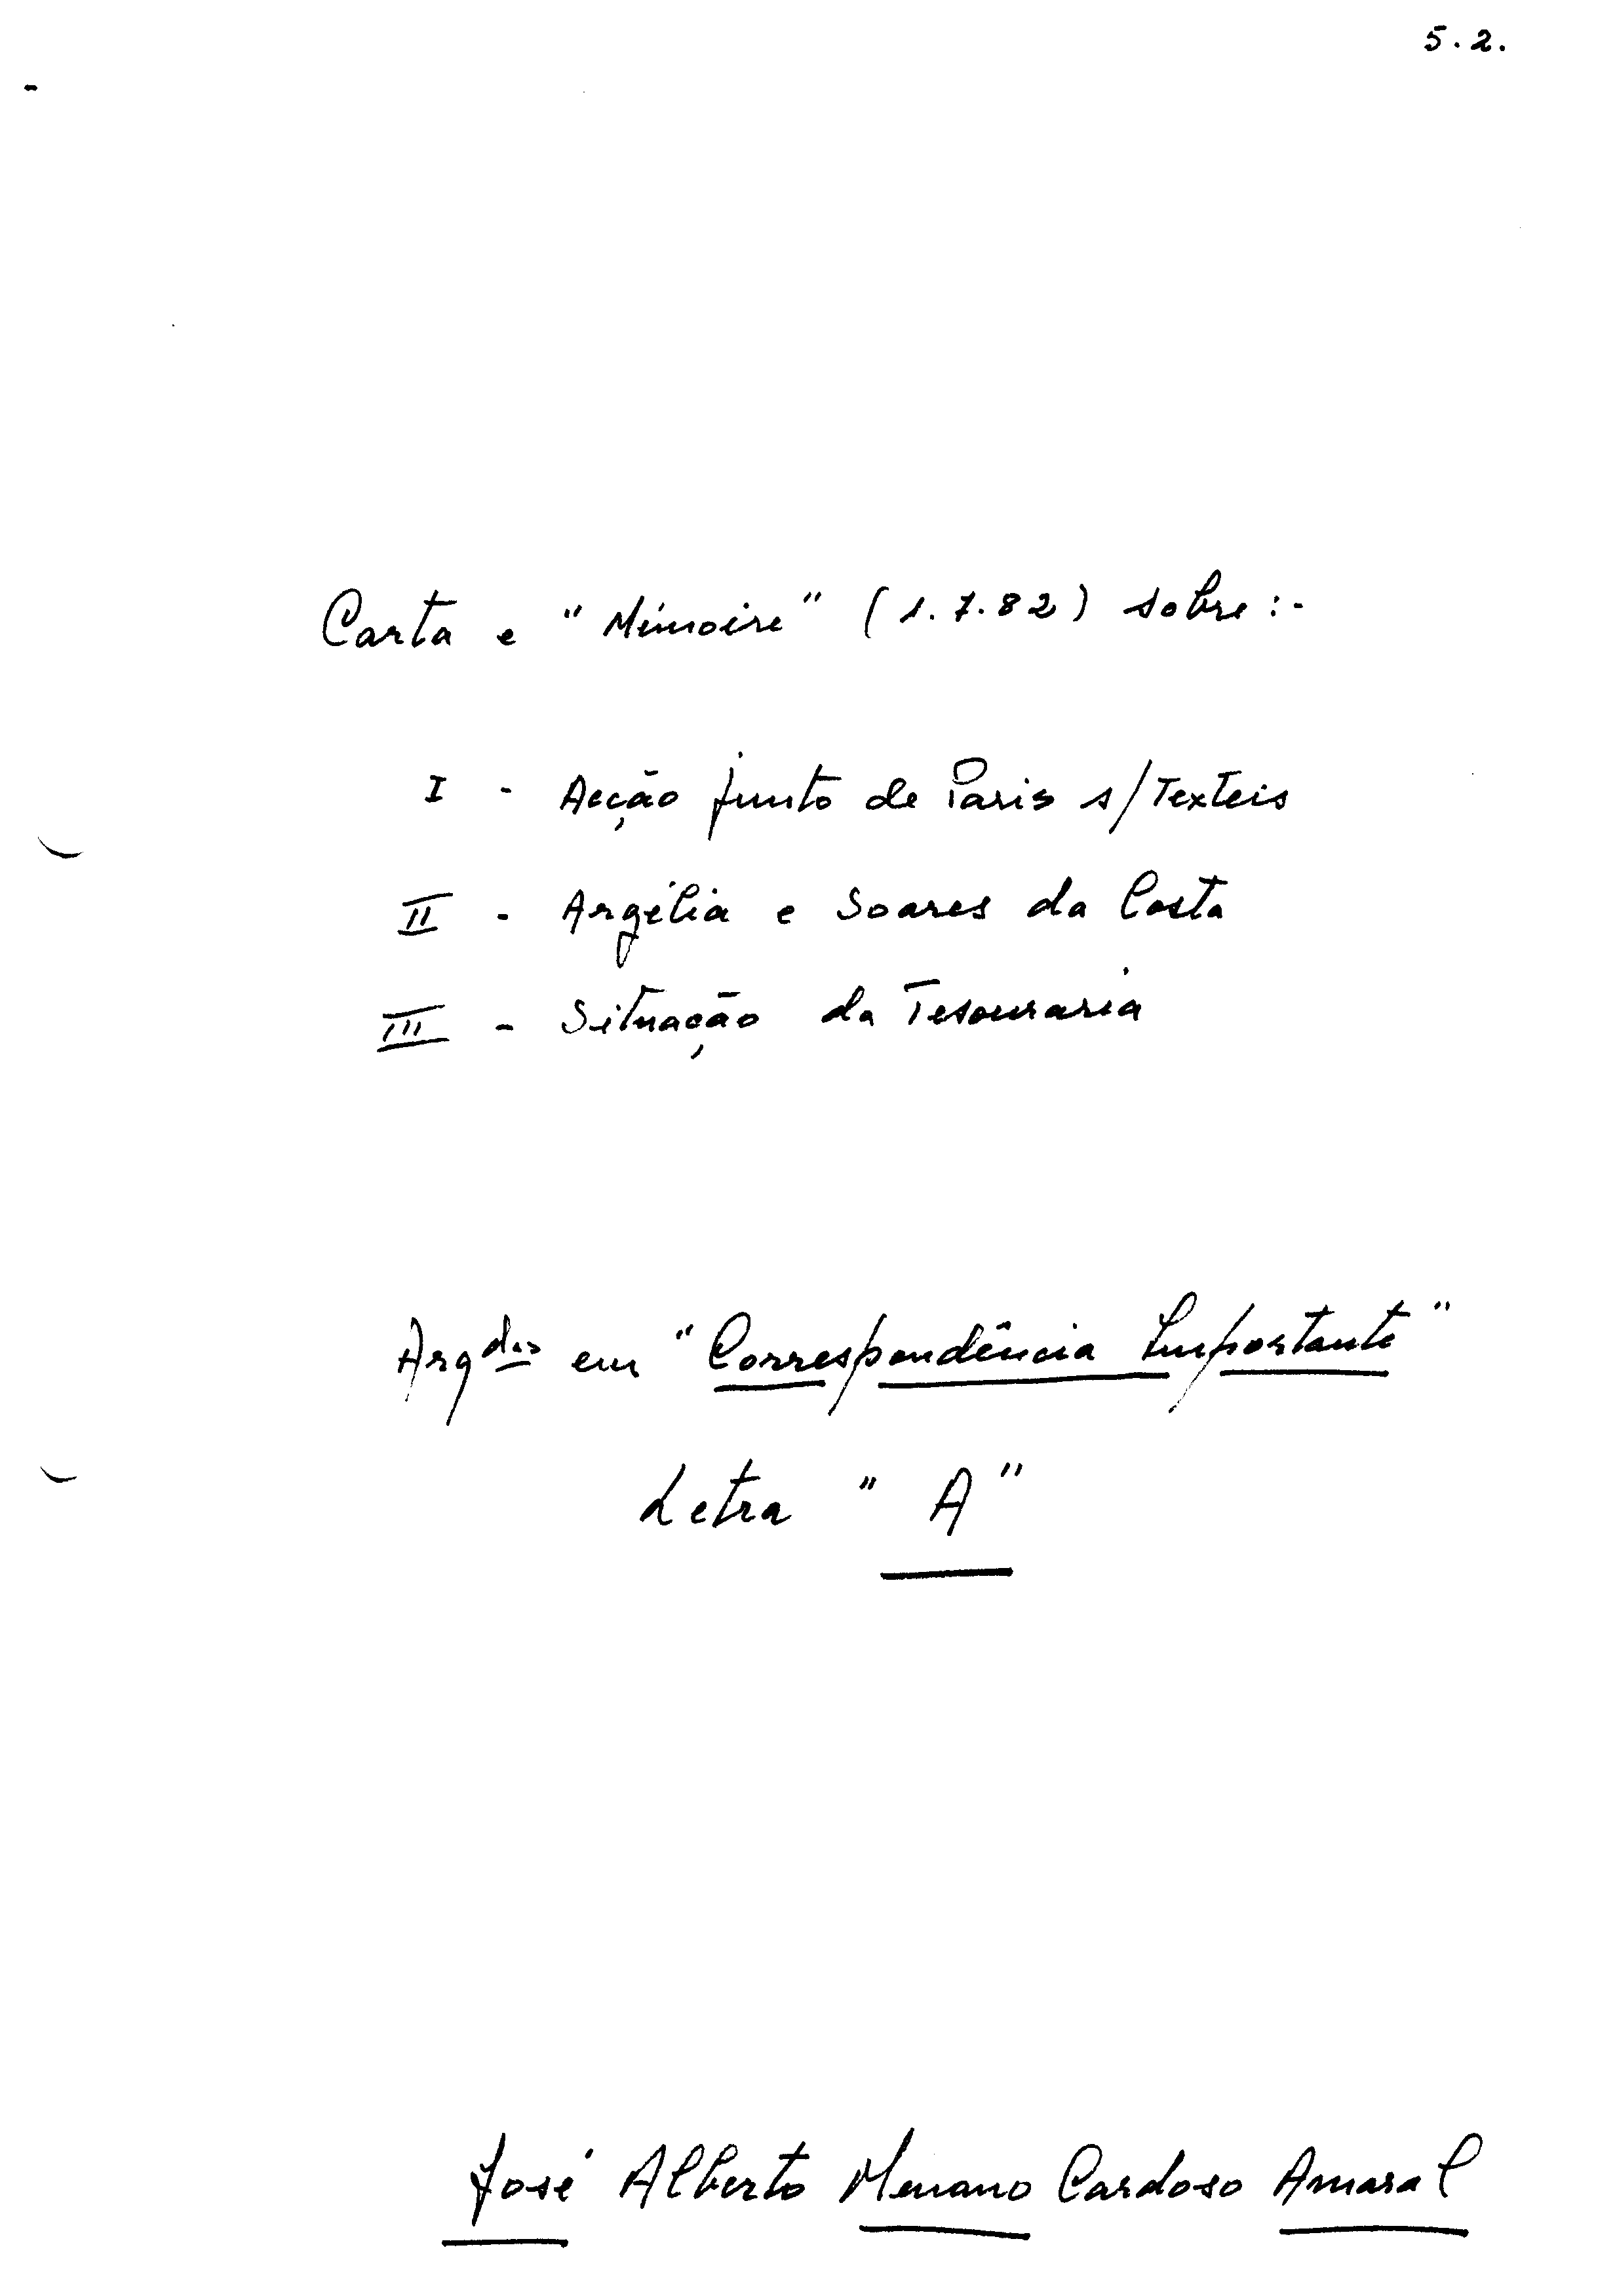 5.2.
Carta e "Mémoire" (1.7.82) sobre:-
I - Acção junto de Paris s/Texteis
II - Argélia e Soares da Costa
III - Situação da Tesouraria
Arqdas em "Correspondência Importante"
Letra "A"
José Alberto Menano Cardoso Amaral